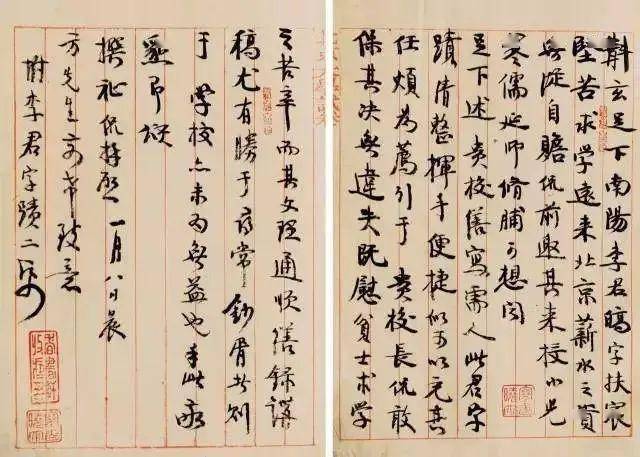 斠玄足下南陽李君字扶
堅苦求學遠来北京薪水之資
無從自贍侃前邀其来校小兒
寒儒延师脩脯可想聞
足下述貴校繕寫需人此君字
蹟清整揮手便捷似可以充其
任煩為薦引于 貴校長侃敢
保其决無違失既慰貧士求學
之苦辛而其文理通順繕録講
稿尤有勝于尋常鈔胥者則
于 學校亦未為無益也手此敬
即頌
撰祉侃拜啓 一月八日晨
方先生前希致意
附李君字蹟二紙